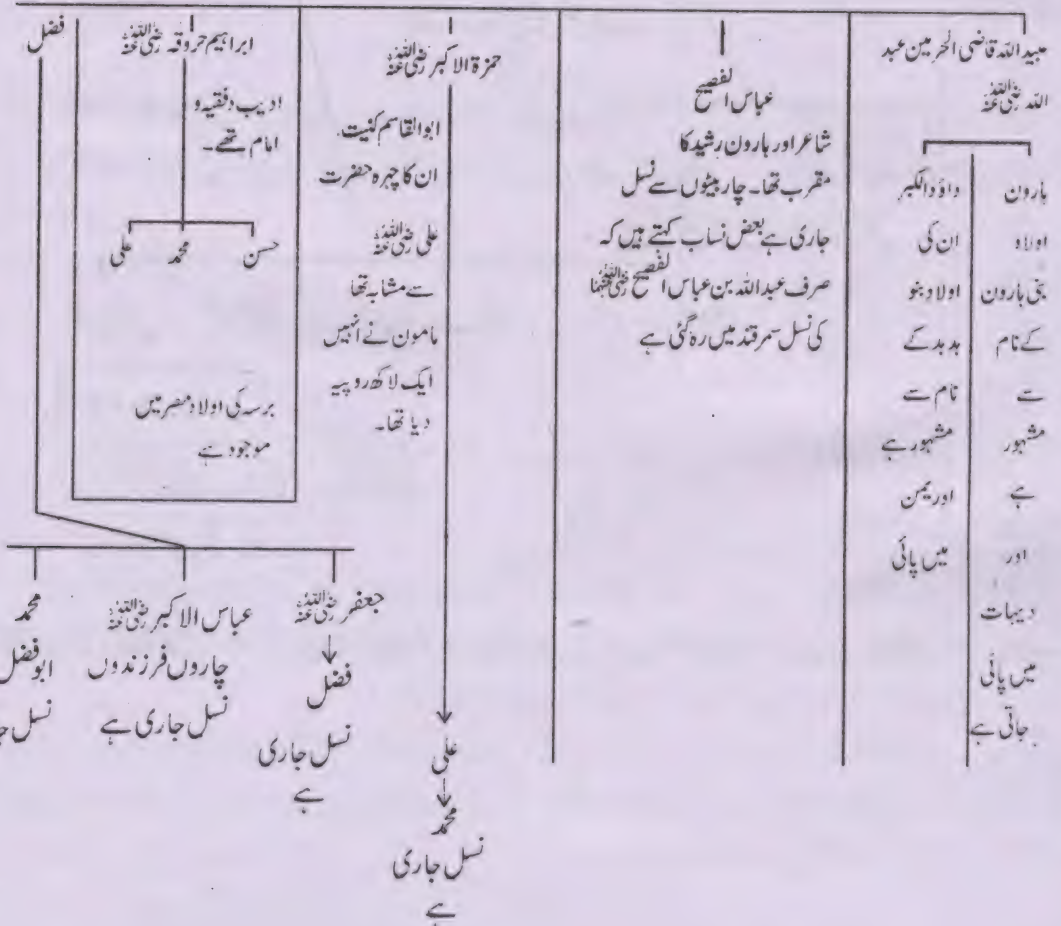 عبید اللہ قاضی الحرمین عبد
اللہ رضی اللہ عنہ
ہارون
اولاد
بنی ہارون
کے نام
سے
مشہور
ہے
اور
دیہات
میں پائی
جاتی ہے
داؤد الکبر
ان کی
اولاد بنو
ہدہد کے
نام سے
مشہور ہے
اور یمن
میں پائی
عباس الفصیح
شاعر اور ہارون رشید کا
مقرب تھا۔ چار بیٹوں سے نسل
جاری ہے بعض نساب کہتے ہیں کہ
صرف عبداللہ بن عباس الفصیح رضی اللہ عنہما
کی نسل سمرقند میں رہ گئی ہے
حمزۃ الاکبر رضی اللہ عنہ
ابوالقاسم کنیت۔
ان کا چہرہ حضرت
علی رضی اللہ عنہ
سے مشابہ تھا
مامون نے انہیں
ایک لاکھ روپیہ
دیا تھا۔
علی
محمد
نسل جاری
ہے
ابراہیم حروقہ رضی اللہ عنہ
ادیب و فقیہ و
امام تھے۔
حسن محمد علی
برسہ کی اولاد مصر میں
موجود ہے
فضل
جعفر رضی اللہ عنہ
فضل
نسل جاری
ہے
عباس الاکبر رضی اللہ عنہ
چاروں فرزندوں
نسل جاری ہے
محمد
ابوفضل
نسل